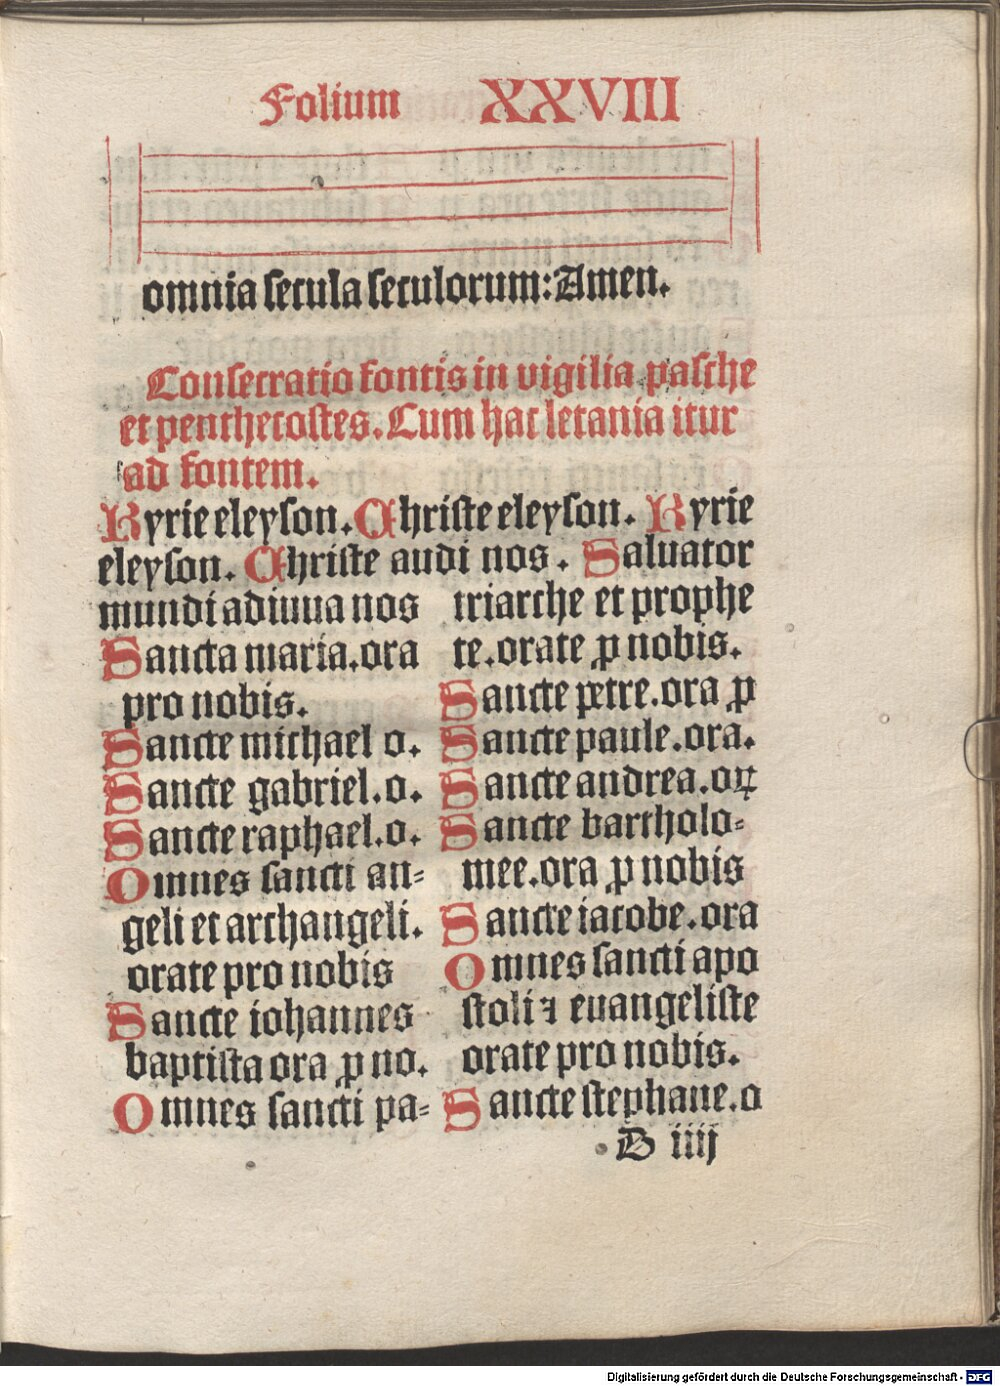 Folium XXVIII
omnia secula seculorum: Amen.
Consecratio fontis in vigilia pasche
et penthecostes. Cum hac letania itur
ad fontem.
Kyrie eleyson. Christe eleyson. Kyrie
eleyson. Christe audi nos. Saluator
mundi adiuua nos
Sancta maria. ora
pro nobis.
Sancte michael o.
Sancte gabriel. o.
Sancte raphael. o.
Omnes sancti an=
geli et archangeli.
orate pro nobis
Sancte iohannes
baptista ora ꝓ no.
Omnes sancti pa=
triarche et prophe
te. orate ꝓ nobis.
Sancte petre. ora ꝓ
Sancte paule. ora.
Sancte andrea. oꝝ
Sancte bartholo=
mee. ora ꝓ nobis
Sancte iacobe. ora
Omnes sancti apo
stoli ⁊ euangeliste
orate pro nobis.
Sancte stephane. o
D iiij
Digitalisierung gefördert durch die Deutsche Forschungsgemeinschaft - DFG